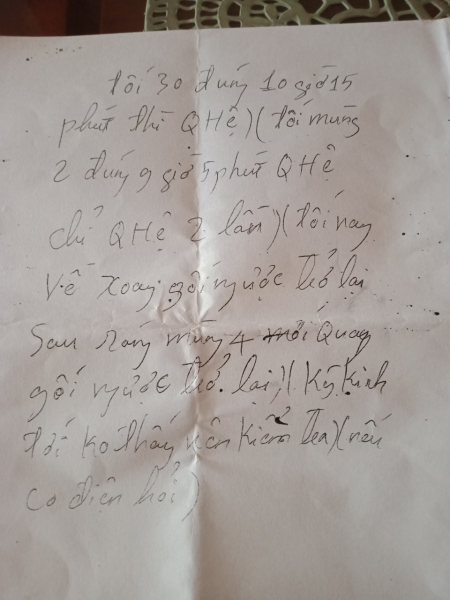 tối 30 đúng 10 giờ 15
phút thì QHệ)(tối mùng
2 đúng 9 giờ 5 phút QHệ
chỉ QHệ 2 lần)(tối nay
Về xoay gối ngược trở lại
Sau sáng mùng 4 mới Quay
gối ngược trở lại)(Kỳ Kinh
tới ko thấy nên Kiểm tra)(nếu
co điện hỏi)